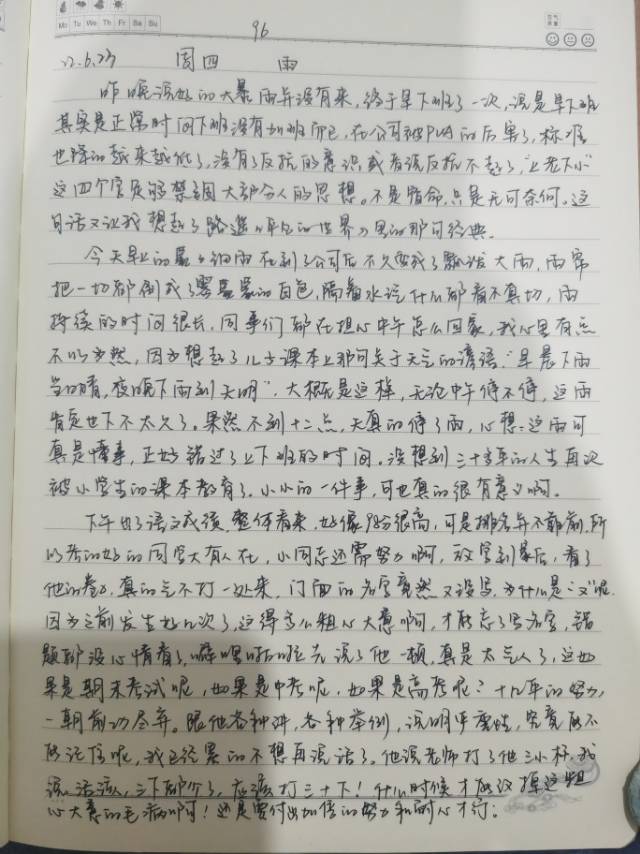 Mo Tu We Th Fr Sa Su
96
22.6.23 周四 雨
昨晚说好的大暴雨并没有来,终于早下班了一次,说是早下班
其实是正常时间下班没有加班而已,在公司被PUA的后果了,标准
也降的越来越低了,没有了反抗的意识或者说反抗不起了,“上老下小”
这四个字足够禁锢大部分人的思想。不是认命,只是无可奈何。这
句话又让我想起了路遥《平凡的世界》里的那句经典。
今天早上的蒙蒙细雨在到了公司后不久变成了瓢泼大雨,雨帘
把一切都倒成了雾蒙蒙的白色,隔着水汽什么都看不真切,雨
持续的时间很长,同事们都在担心中午怎么回家,我心里有点
不以为然,因为想起了儿子课本上那句关于天气的谚语:“早晨下雨
当日晴,夜晚下雨到天明”,大概就是这样,无论中午停不停,这雨
肯定也下不太久了。果然不到十二点,天真的停了雨,心想:这雨可
真是懂事,正好错过了上下班的时间。没想到三十多年的人生再次
被小学生的课本教育了。小小的一件事,可也真的很有意义啊。
下午出了语文成绩,整体看来,好像分很高,可是排名并不靠前,所
以考的好的同学大有人在,小同志还需努力啊,放学到家后,看了
他的卷子,真的气不打一处来,门面的名字竟然又没写,为什么是“又”呢,
因为之前发生好几次了,这得多么粗心大意啊,才能忘了写名字,错
题都没心情看了,噼里啪啦先说了他一顿,真是太气人了,这如
果是期末考试呢,如果是中考呢,如果是高考呢?十几年的努力,
一朝前功尽弃。跟他各种讲,各种举例,说明严重性,究竟能不
能记住呢,我已经累的不想再说话了。他说老师打了他三小棒,我
说:活该,三下都少了,应该打三十下!什么时候才能改掉这粗
心大意的毛病啊!还是要付出加倍的努力和耐心才行。